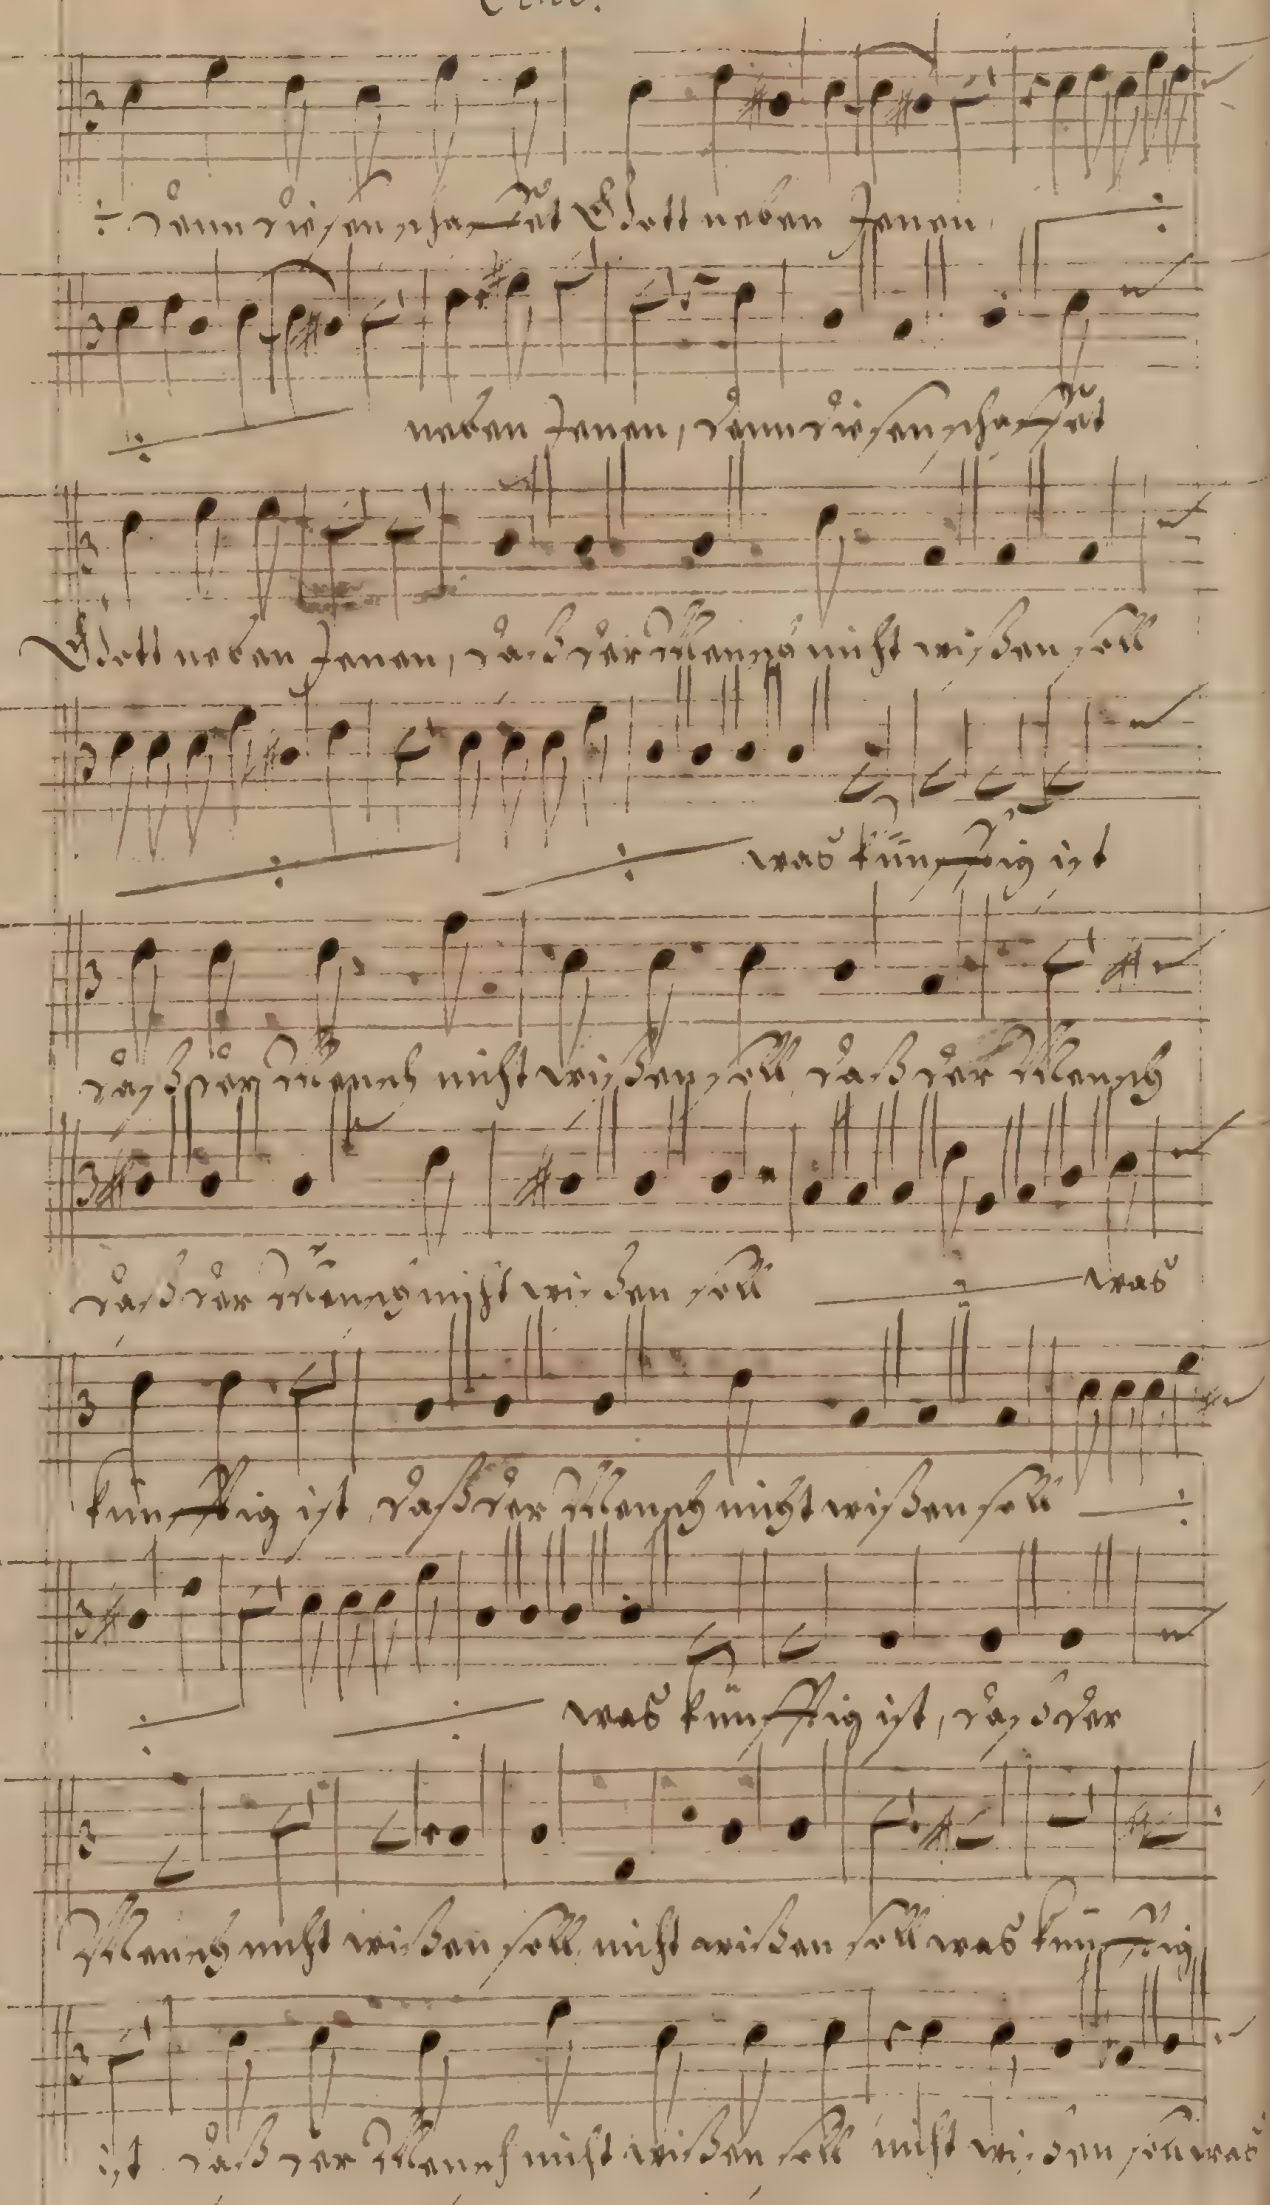 denn diesen schaffet Gott neben Jenen
neben Jenen, denn diesen schaffet
Gott neben Jenen, daß der Mensch nicht wißen soll
was künfftig ist
daß der Mensch nicht wißen soll daß der Mensch
daß der Mensch nicht wißen soll was
künfftig ist daß der Mensch nicht wißen soll
was künfftig ist, daß der
Mensch nicht wißen soll, nicht wißen soll was künfftig
ist daß der Mensch nicht wißen soll nicht wißen soll was